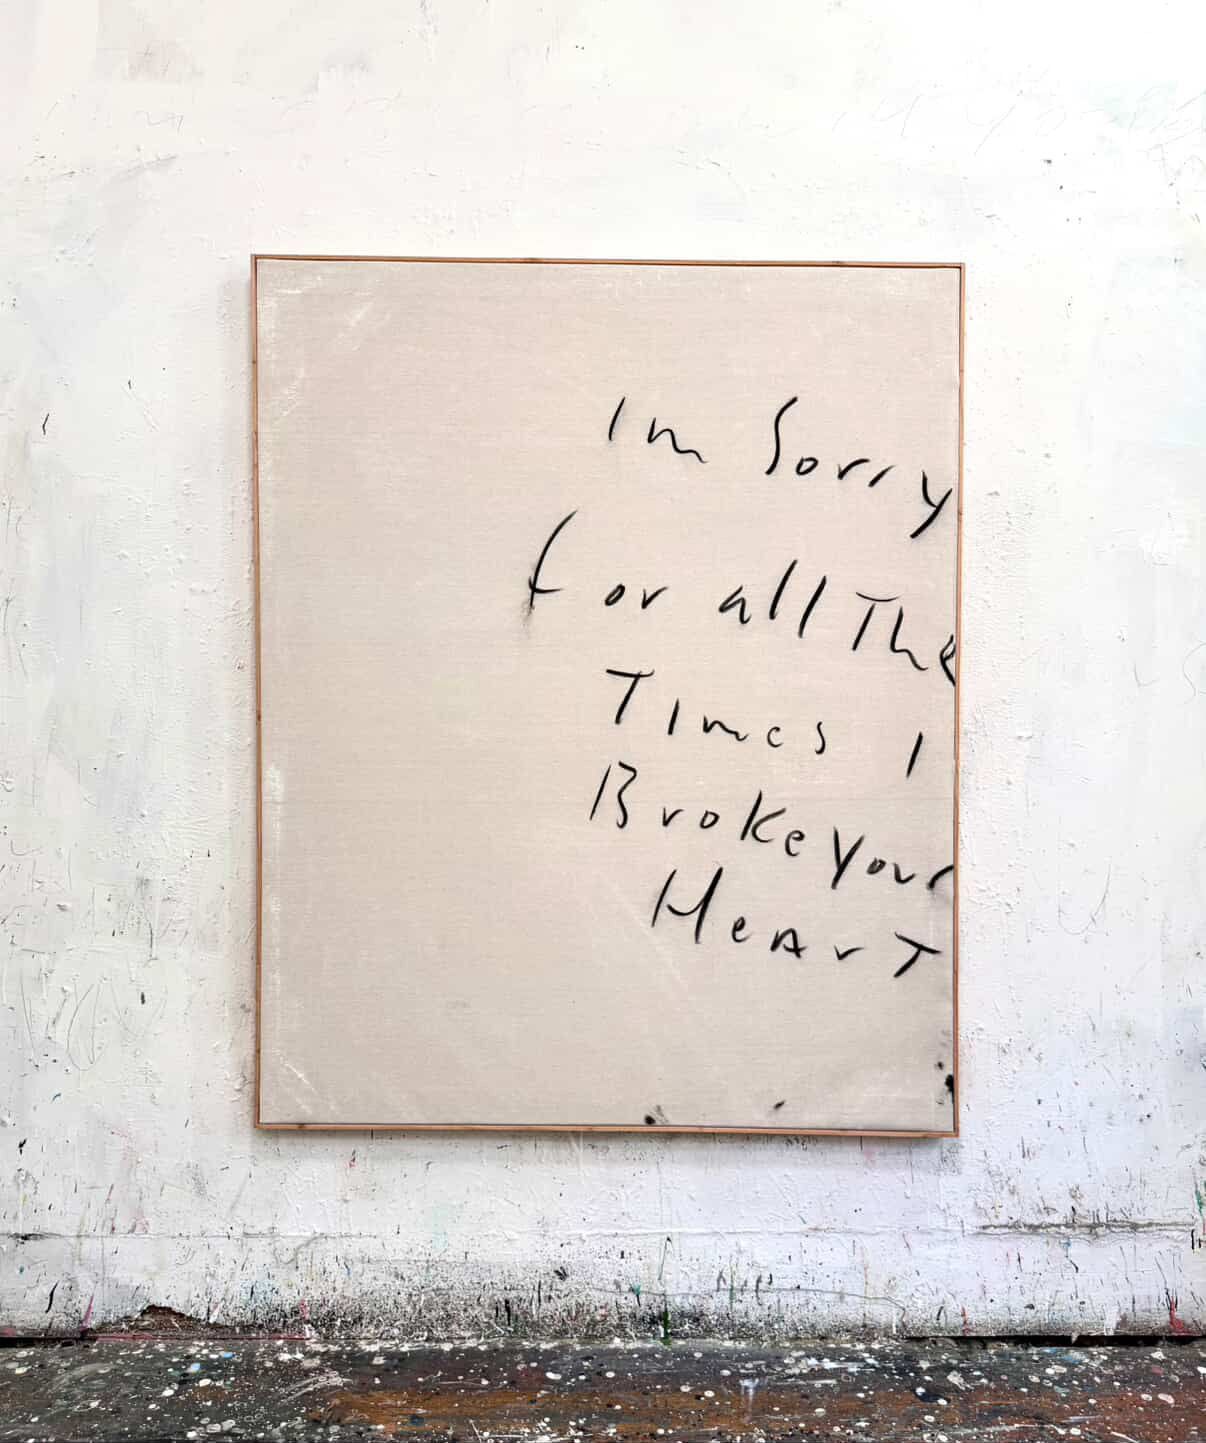 Im Sorry
for all The
Times I
Broke your
HeArT